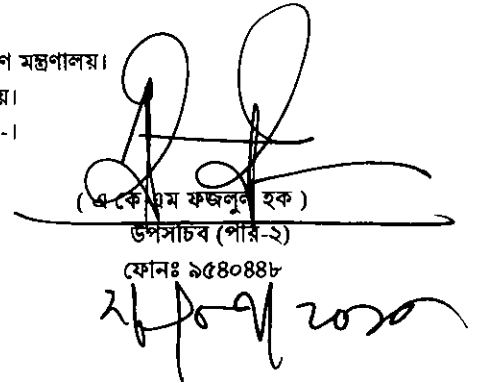 ণ মন্ত্রণালয়।
য়।
-।
( এ কে এম ফজলুল হক )
উপসচিব (পরি-২)
ফোনঃ ৯৫৪০৪৪৮